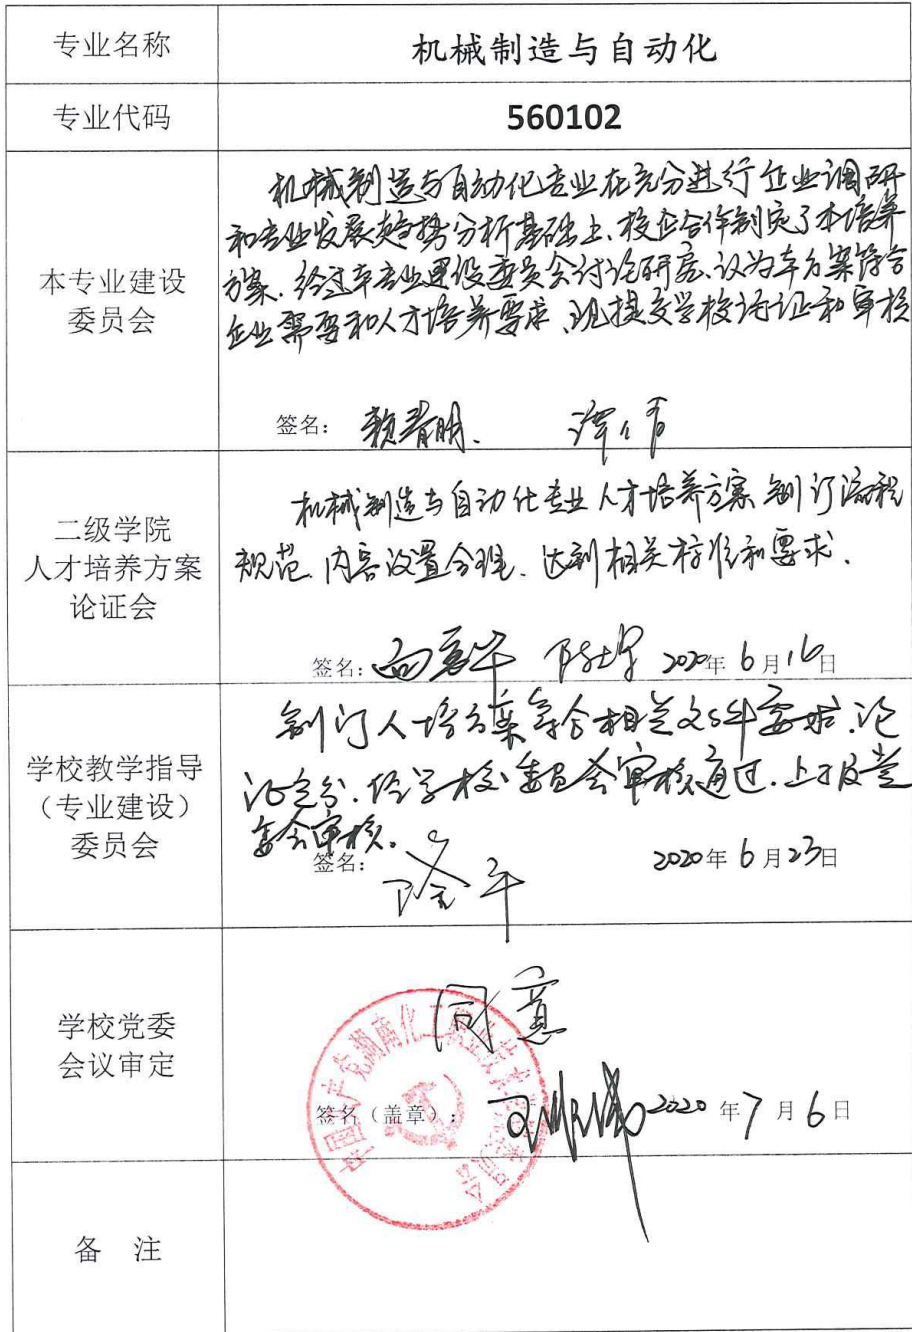 专业名称
机械制造与自动化
专业代码
560102
本专业建设
委员会
机械制造与自动化专业在充分进行企业调研
和专业发展趋势分析基础上、校企合作制定了本培养
方案. 经过本专业建设委员会讨论研究、认为本方案符合
企业需要和人才培养要求、现提交学校论证和审核
签名: 赖青明、 谭倩
二级学院
人才培养方案
论证会
机械制造与自动化专业人才培养方案制订流程
规范、内容设置合理、达到相关标准和要求.
签名: 2020年6月16日
学校教学指导
（专业建设）
委员会
制订人培方案符合相关文件要求.论
证充分.经学校委员会审核通过.上报党
委会审核.
签名: 2020年6月23日
学校党委
会议审定
同意
中国共产党湖南化工职业技术学院委员会
签名（盖章）: 2020年7月6日
备 注